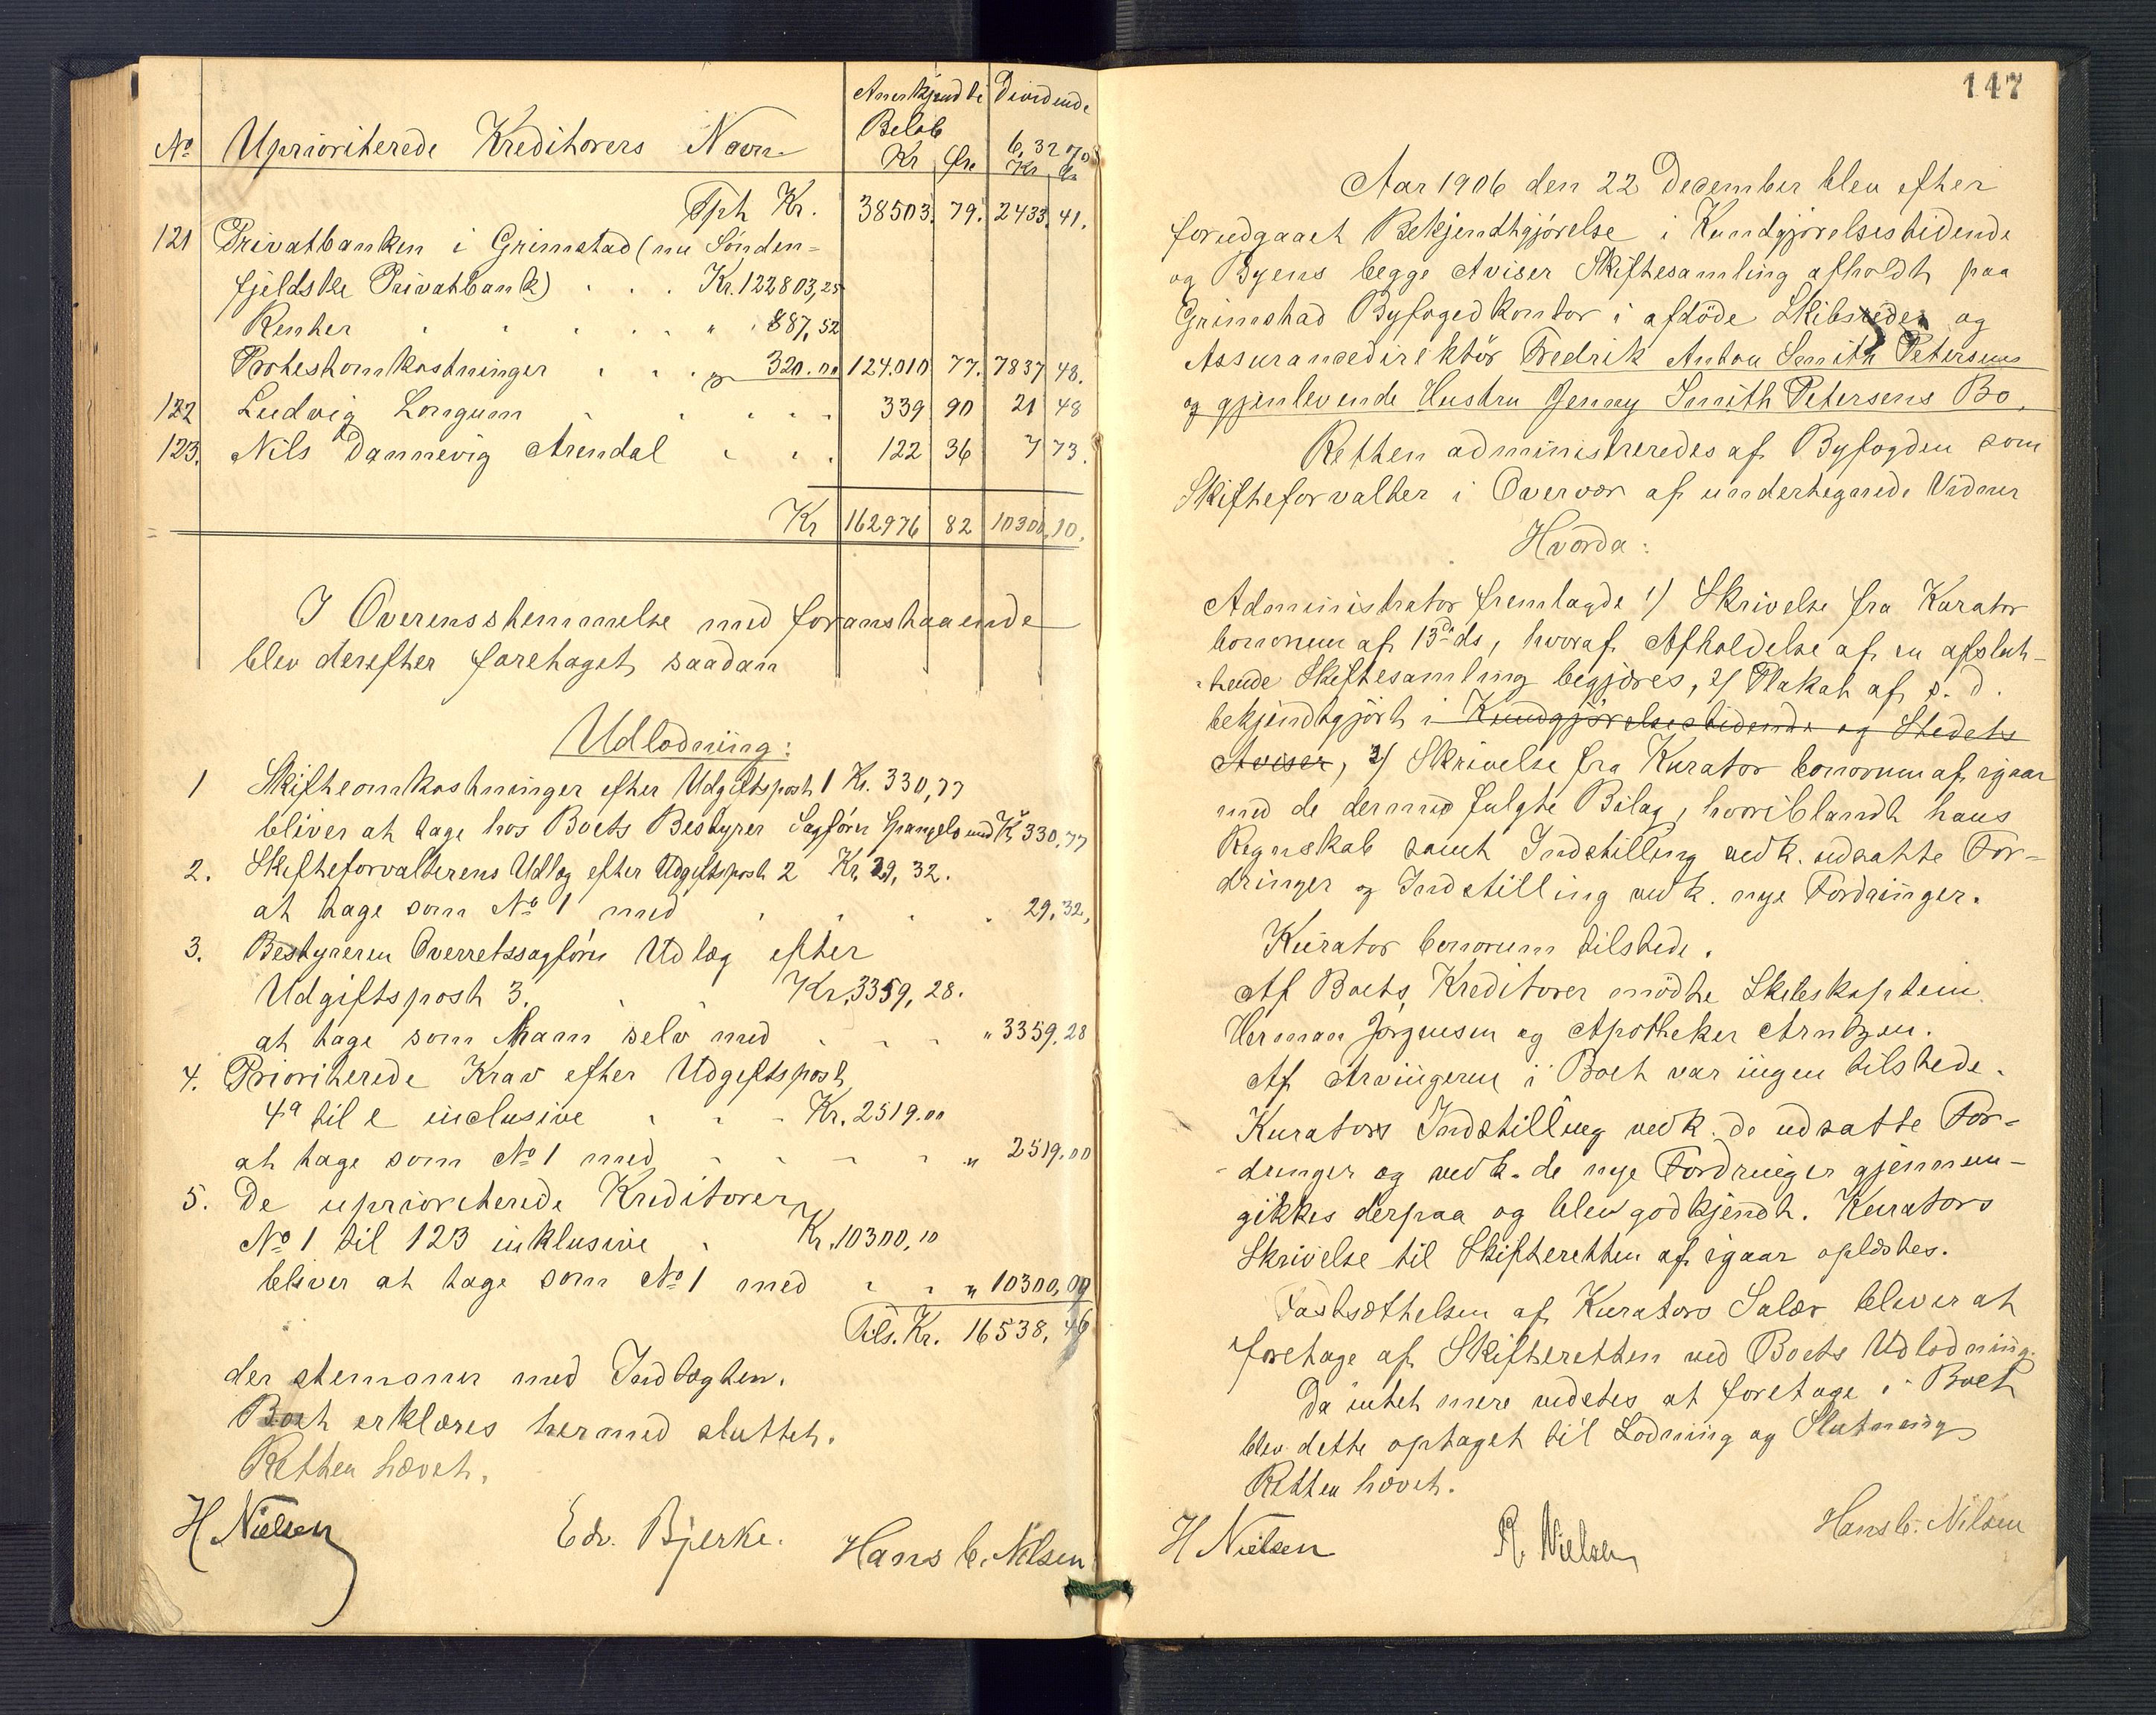 Anerkjendte Dividende
Beløb 6,32 %
No Uprioriterede Kreditorers Navn Kr Øre Kr Øre
Tph Kr. 38503. 79. 2433. 41.
121 Privatbanken i Grimstad (nu Sønden-
fjeldske Privatbank) . . . Kr. 122803,25
Renter . . . . . " . 887,52
Protestomkostninger . . . " 320.00 124.010 77. 7837 48.
122 Ludvig Longum . . . . . 339 90 21 48
123. Nils Dannevig Arendal . . . 122 36 7 73.
Kr 162976 82 10300, 10.
I Overensstemmelse med foranstaaende
blev derefter foretaget saadan
Udlodning:
1 Skifteomkostninger efter Udgiftspost 1 Kr. 330,77
bliver at tage hos Boets Bestyrer Sagfører Spangelo med Kr 330.77
2. Skifteforvalterens Udlæg efter Udgiftspost 2 Kr. 29, 32.
at tage som No 1 med . . . . 29.32,
3. Bestyreren Overretssagfører Udlæg efter
Udgiftspost 3. . . Kr. 3359, 28.
at tage som Mam selv med . . . " 3359.28
4. Prioriterede Krav efter Udgiftspost
4a til e inclusive . . . Kr. 2519.00
at tage som No 1 med . . . . " 2519.00
5. De uprioriterede Kreditorer
No 1 til 123 inklusive . Kr. 10300,10
bliver at tage som No 1 med . . " 10300,09
Tils. Kr. 16538,46
der stemmer med Indtægten.
Boet erklæres hermed sluttet.
Retten hævet.
H Nielsen Edv. Bjerke. Hans C. Nilsen
147
Aar 1906 den 22 December blev efter
forudgaaet Bekjendtgjørelse i Kundgjørelsestidende
og Byens begge Aviser Skiftesamling afholdt paa
Grimstad Byfogedkontor i afdöde Skibsreder og
Assurancedirektör Fredrik Anton Smith Petersens
og gjenlevende Hustru Jenny Smith Petersens Bo.
Retten administreredes af Byfogden som
Skifteforvalter i Overvær af undertegnede Vidner
Hvorda:
Administrator fremlagde 1) Skrivelse fra Kurator
bonorum af 13de ds, hvoraf Afholdelse af en afslut-
-tende Skiftesamling begjæres, 2) Plakat af s. d.
bekjendtgjört i Kundgjörelsestidende og Stedets
Aviser, 3) Skrivelse fra Kurator bonorum af igaar
med de dermed fulgte Bilag, hvoriblandt hans
Regnskab samt Indstilling vedk. udsatte For-
dringer og Indstilling vedk. nye Fordringer.
Kurator bonorum tilstede.
Af Boets Kreditorer mödte Skibskaptein
Herman Jørgensen og Apotheker Arntzen.
Af Arvingerne i Boet var ingen tilstede.
Kurators Indstilling vedk. de udsatte For-
-dringer og vedk. de nye Fordringer gjennem-
gikkes derpaa og blev godkjendt. Kurators
Skrivelse til Skifteretten af igaar oplæstes.
Fastsættelsen af Kurators Salær bliver at
foretage af Skifteretten ved Boets Udlodning.
Da intet mere vidstes at foretage i Boet
blev dette optaget til Lodning og Slutning
Retten hævet.
H Nielsen R. Nielsen Hans C. Nilsen